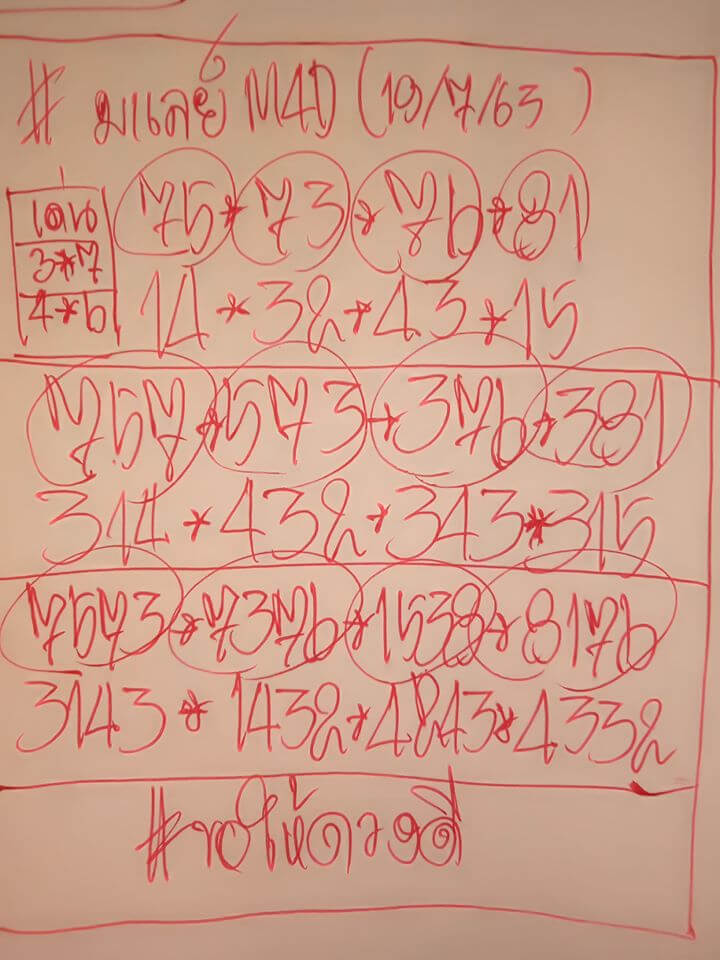 # มาเลย์ M4D (19/7/63)
เด่น
3*7
4*6
75*73*76*81
14*32*43*15
757*573*376*381
314*432*343*315
7573*7376*1538*8176
3143*1432*4243*4332
#ขอให้ดวงดี